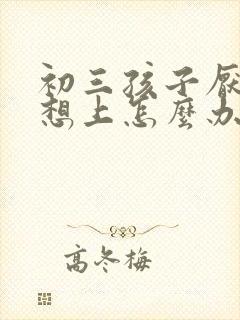 初三孩子厌
想上怎麽办
高冬梅